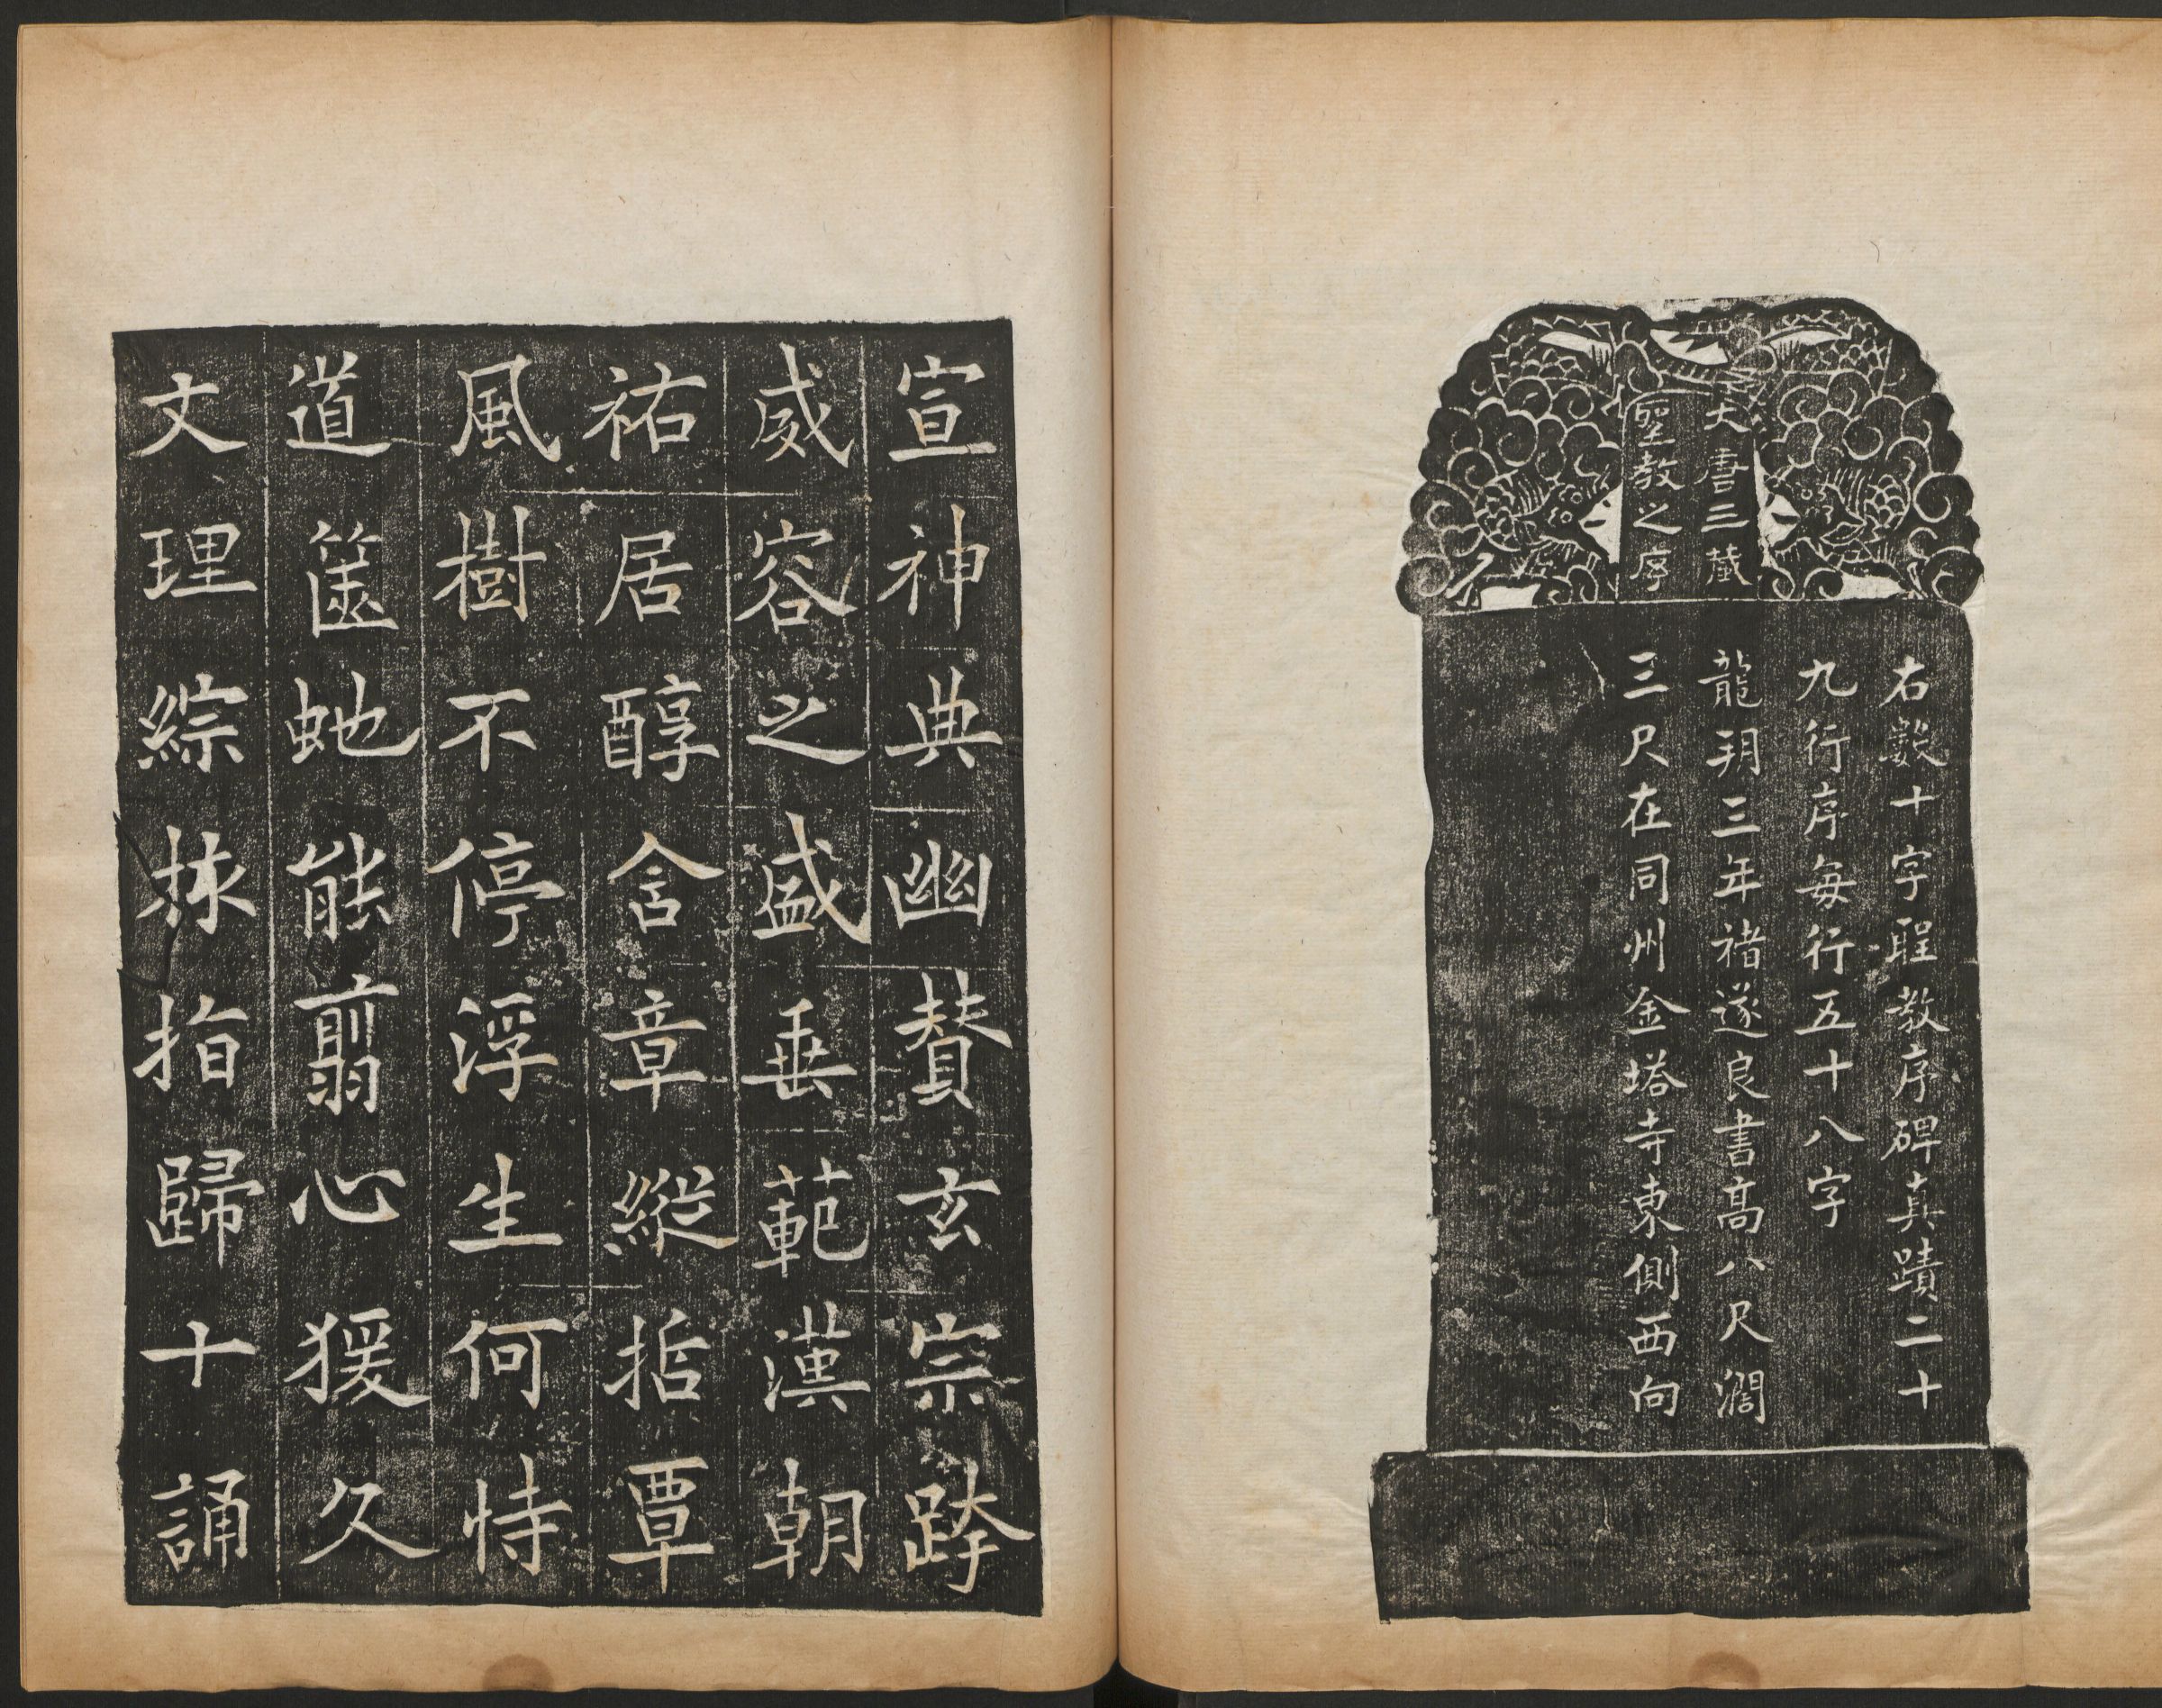 大唐三藏
聖教之序
右數十字聖教序碑真蹟二十
九行序每行五十八字
龍朔三年褚遂良書高八尺濶
三尺在同州金塔寺東側西向
宣神典幽贊玄宗跨
威容之盛垂範漢朝
祐居醇含章縱括覃
風樹不停浮生何恃
道篋虵能翦心猨久
文理綜指歸十誦